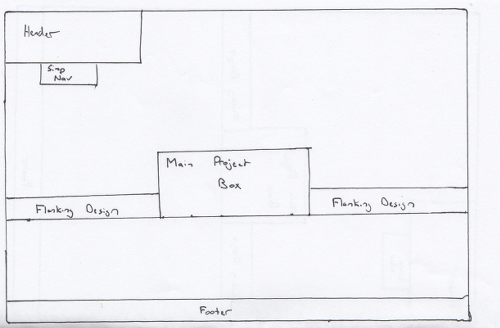 Header
Simp
Nav
Main Project
Box
Flanking Design
Flanking Design
Footer